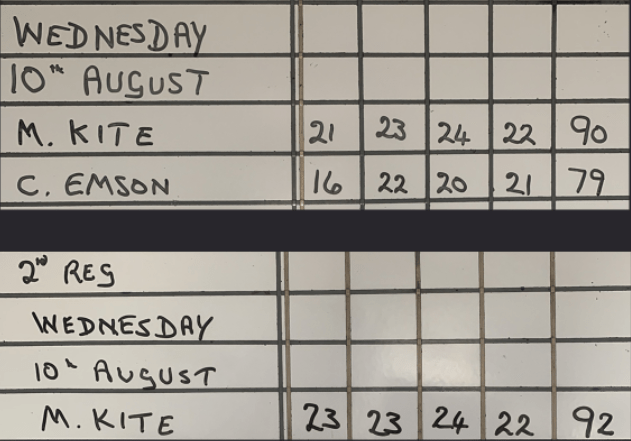 WEDNESDAY
10TH AUGUST
M. KITE 21 23 24 22 90
C. EMSON 16 22 20 21 79
2ND REG
WEDNESDAY
10TH AUGUST
M. KITE 23 23 24 22 92